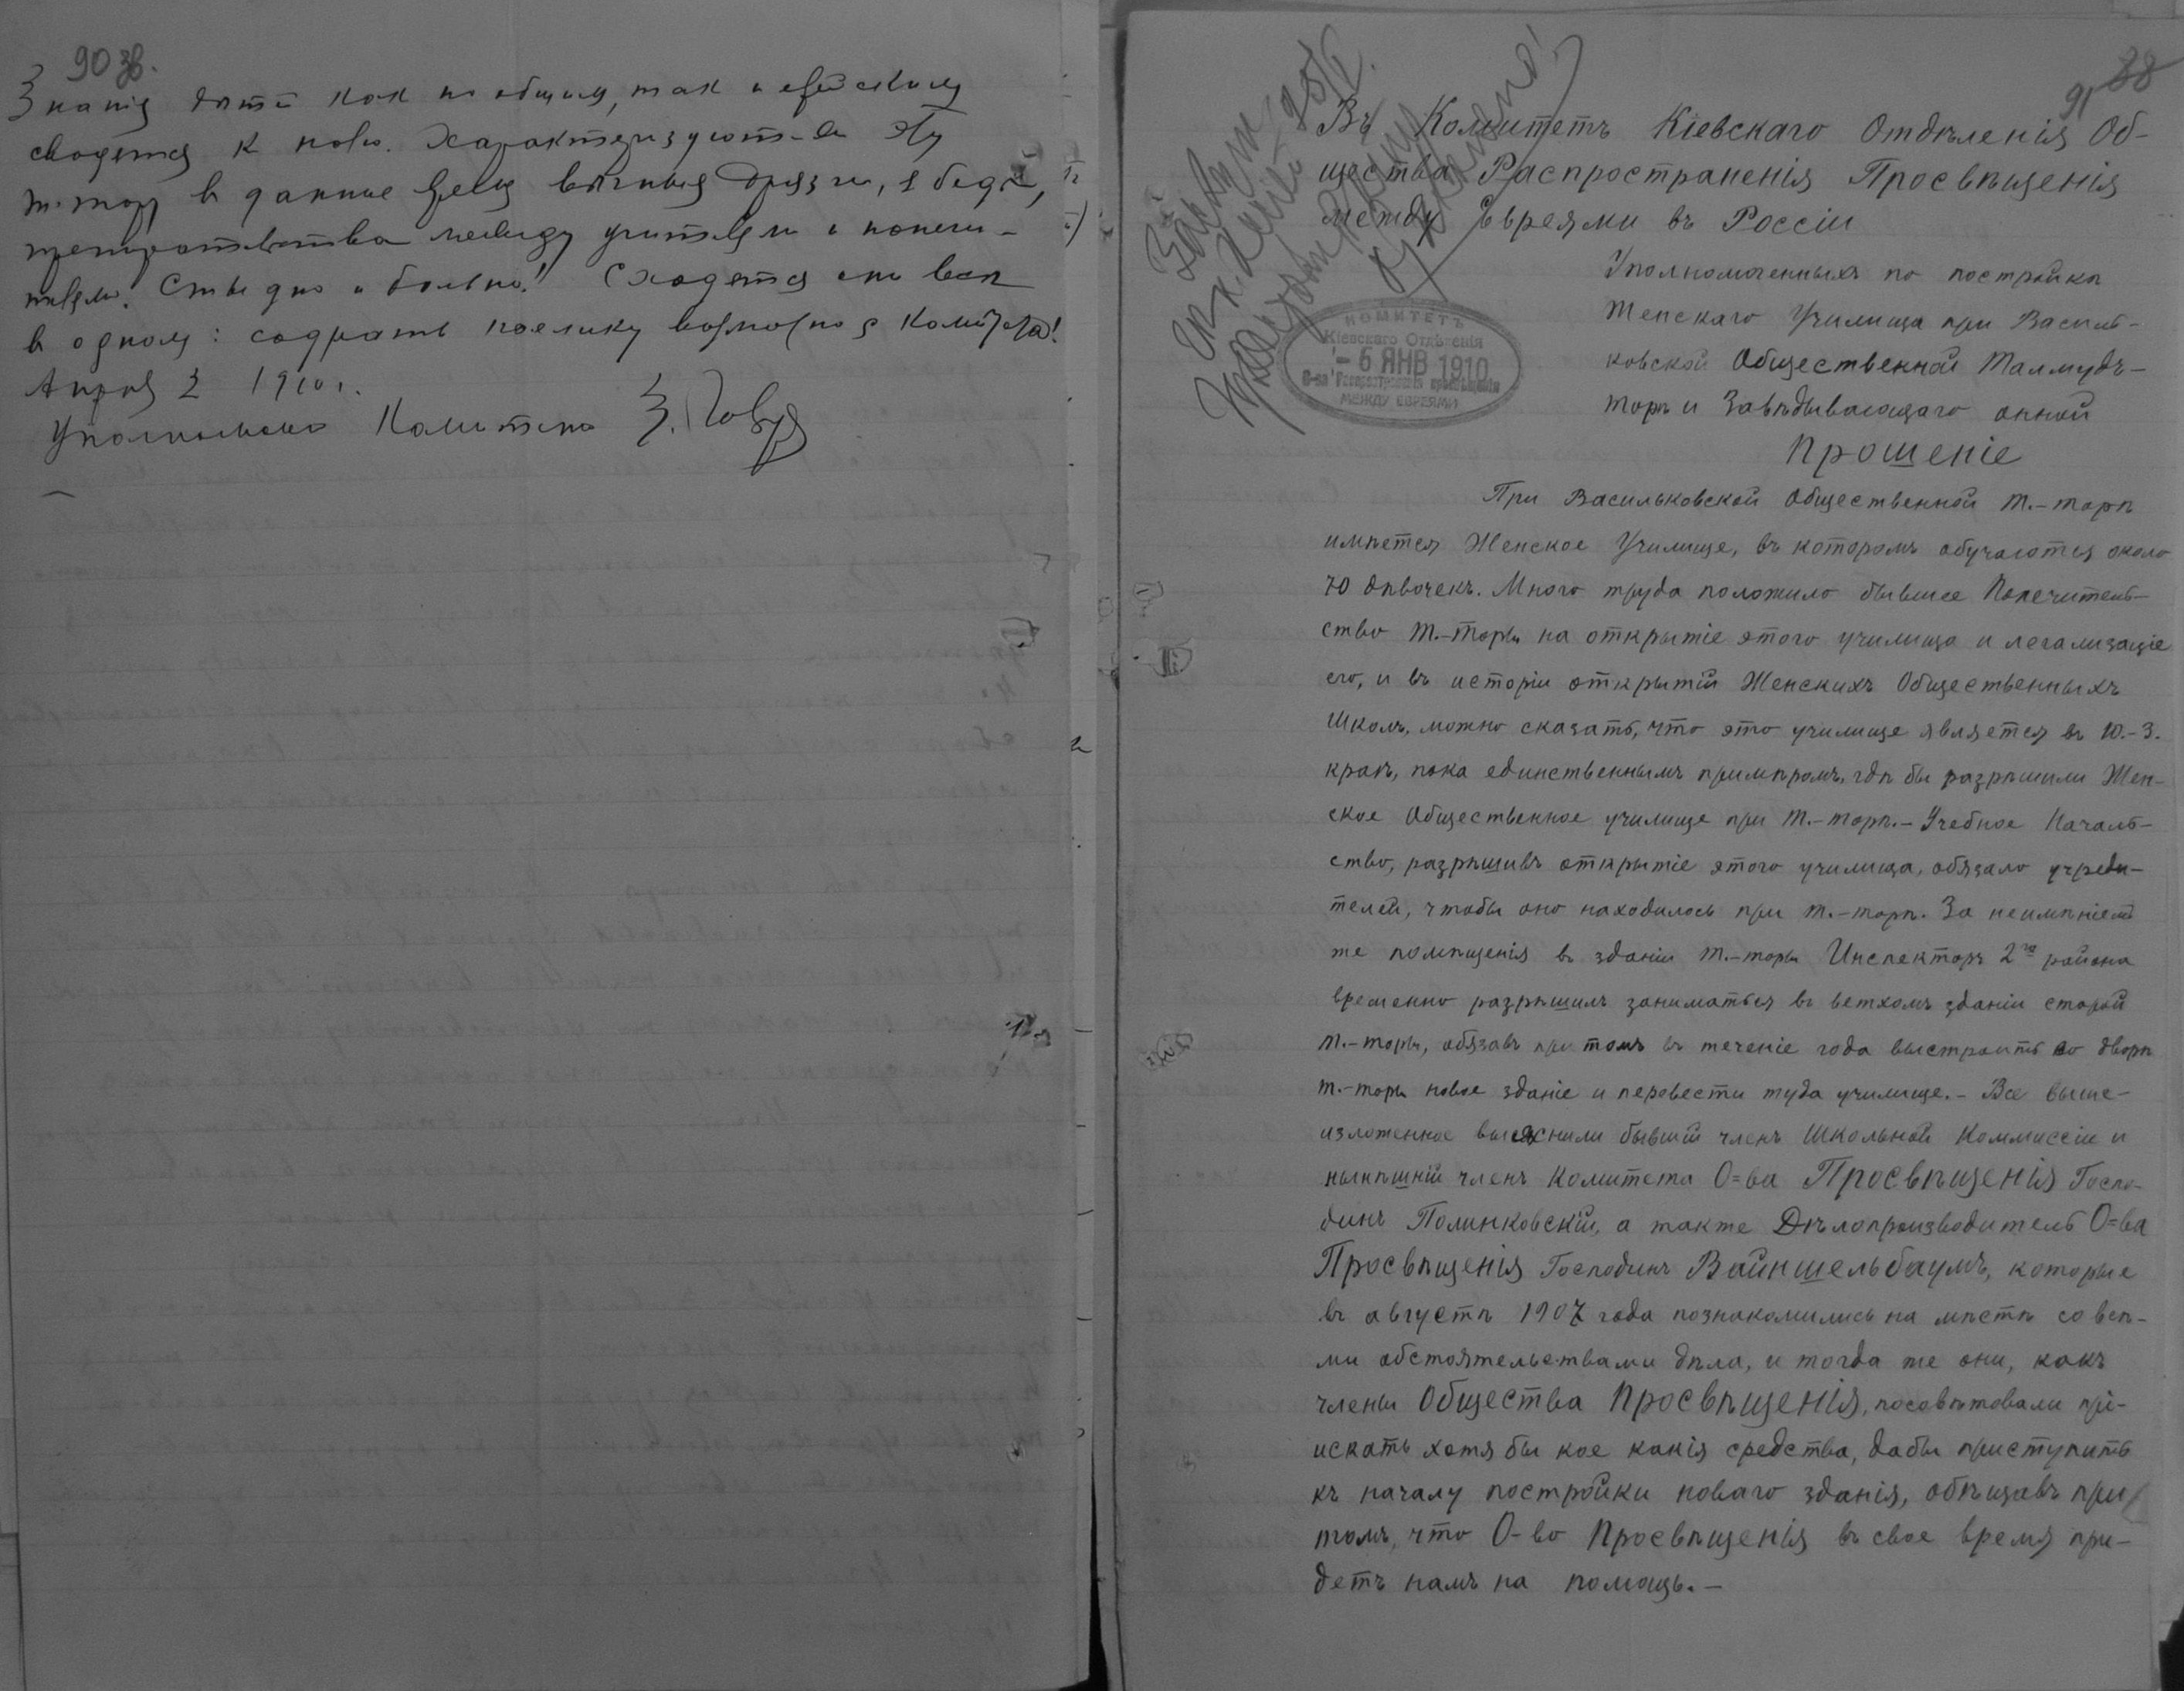 90 зв.
Знания детей как по общим, так и еврейским
сводятся к нолю. Характеризуют-ли эту
т.-тору в данное время вечныя дрязги,
между учителями и попечи-
телями. Стыдно и больно! Сходятся они все
в одном: содрать поелику возможно с Комитета!
Апреля 2 1910 г.
Уполномочен. Комитета
91 88
Въ Комитетъ Кіевскаго Отдѣленія Об-
щества Распространенія Просвѣщенія
между Евреями въ Россіи
Уполномоченныхъ по постройкѣ
Женскаго Училища при Василь-
ковской Общественной Талмудъ-
торѣ и Завѣдывающаго онной
Прошеніе
КОМИТЕТЪ
Кіевскаго Отдѣленія
- 6 ЯНВ 1910
О-ва Распространенія просвѣщенія
МЕЖДУ ЕВРЕЯМИ
При Васильковской Общественной Т.-торѣ
имѣется Женское Училище, въ которомъ обучаются около
70 дѣвочекъ. Много труда положило бывшее Попечитель-
ство Т.-торы на открытіе этого училища и легализаціе
его, и въ исторіи открытій Женскихъ Общественныхъ
Школъ, можно сказать, что это училище является въ Ю.-З.
краѣ, пока единственнымъ примѣромъ, гдѣ бы разрѣшили Жен-
ское Общественное училище при Т.-торѣ.- Учебное Началь-
ство, разрѣшивъ открытіе этого училища, обязало учреди-
телей, чтобы оно находилось при т.-торѣ. За неимѣніемъ
же помѣщенія въ зданіи Т.-торы Инспекторъ 2го района
временно разрѣшилъ заниматься въ ветхомъ зданіи старой
т.-торы, обязавъ при томъ въ теченіе года выстроить во дворѣ
т.-торы новое зданіе и перевести туда училище.- Все выше-
изложенное выяснили бывшій членъ Школьной Коммиссіи и
нынѣшній членъ Комитета О=ва Просвѣщенія Госпо-
динъ Полинковскій, а также Дѣлопроизводитель О=ва
Просвѣщенія Господинъ Вайншельбаумъ, которые
въ августѣ 1907 года познакомились на мѣстѣ со всѣ-
ми обстоятельствами дѣла, и тогда же они, какъ
члены Общества Просвѣщенія, посовѣтовали прі-
искать хотя бы кое какія средства, дабы приступить
къ началу постройки новаго зданія, обѣщавъ при
томъ, что О-во Просвѣщенія въ свое время при-
детъ намъ на помощь.-